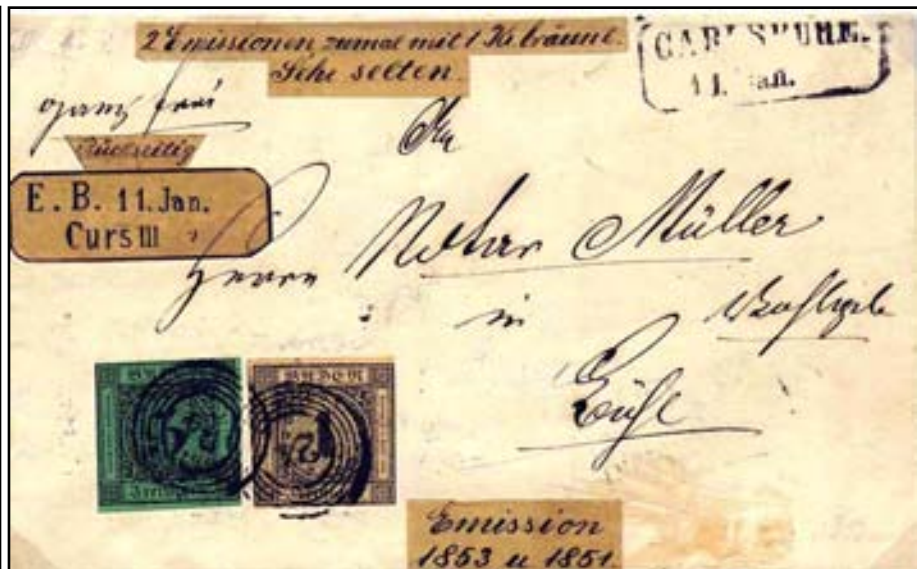 2 Emissionen zumal mit 1 Kr. bräunl.
Sehr selten.
CARLSRUHE.
11. Jan.
ganz frei
Rückseitig
E. B. 11. Jan.
Curs III
An
Herrn Notar Müller
in
Bühl
BADEN
BADEN
24
24
Emission
1853 u 1851.